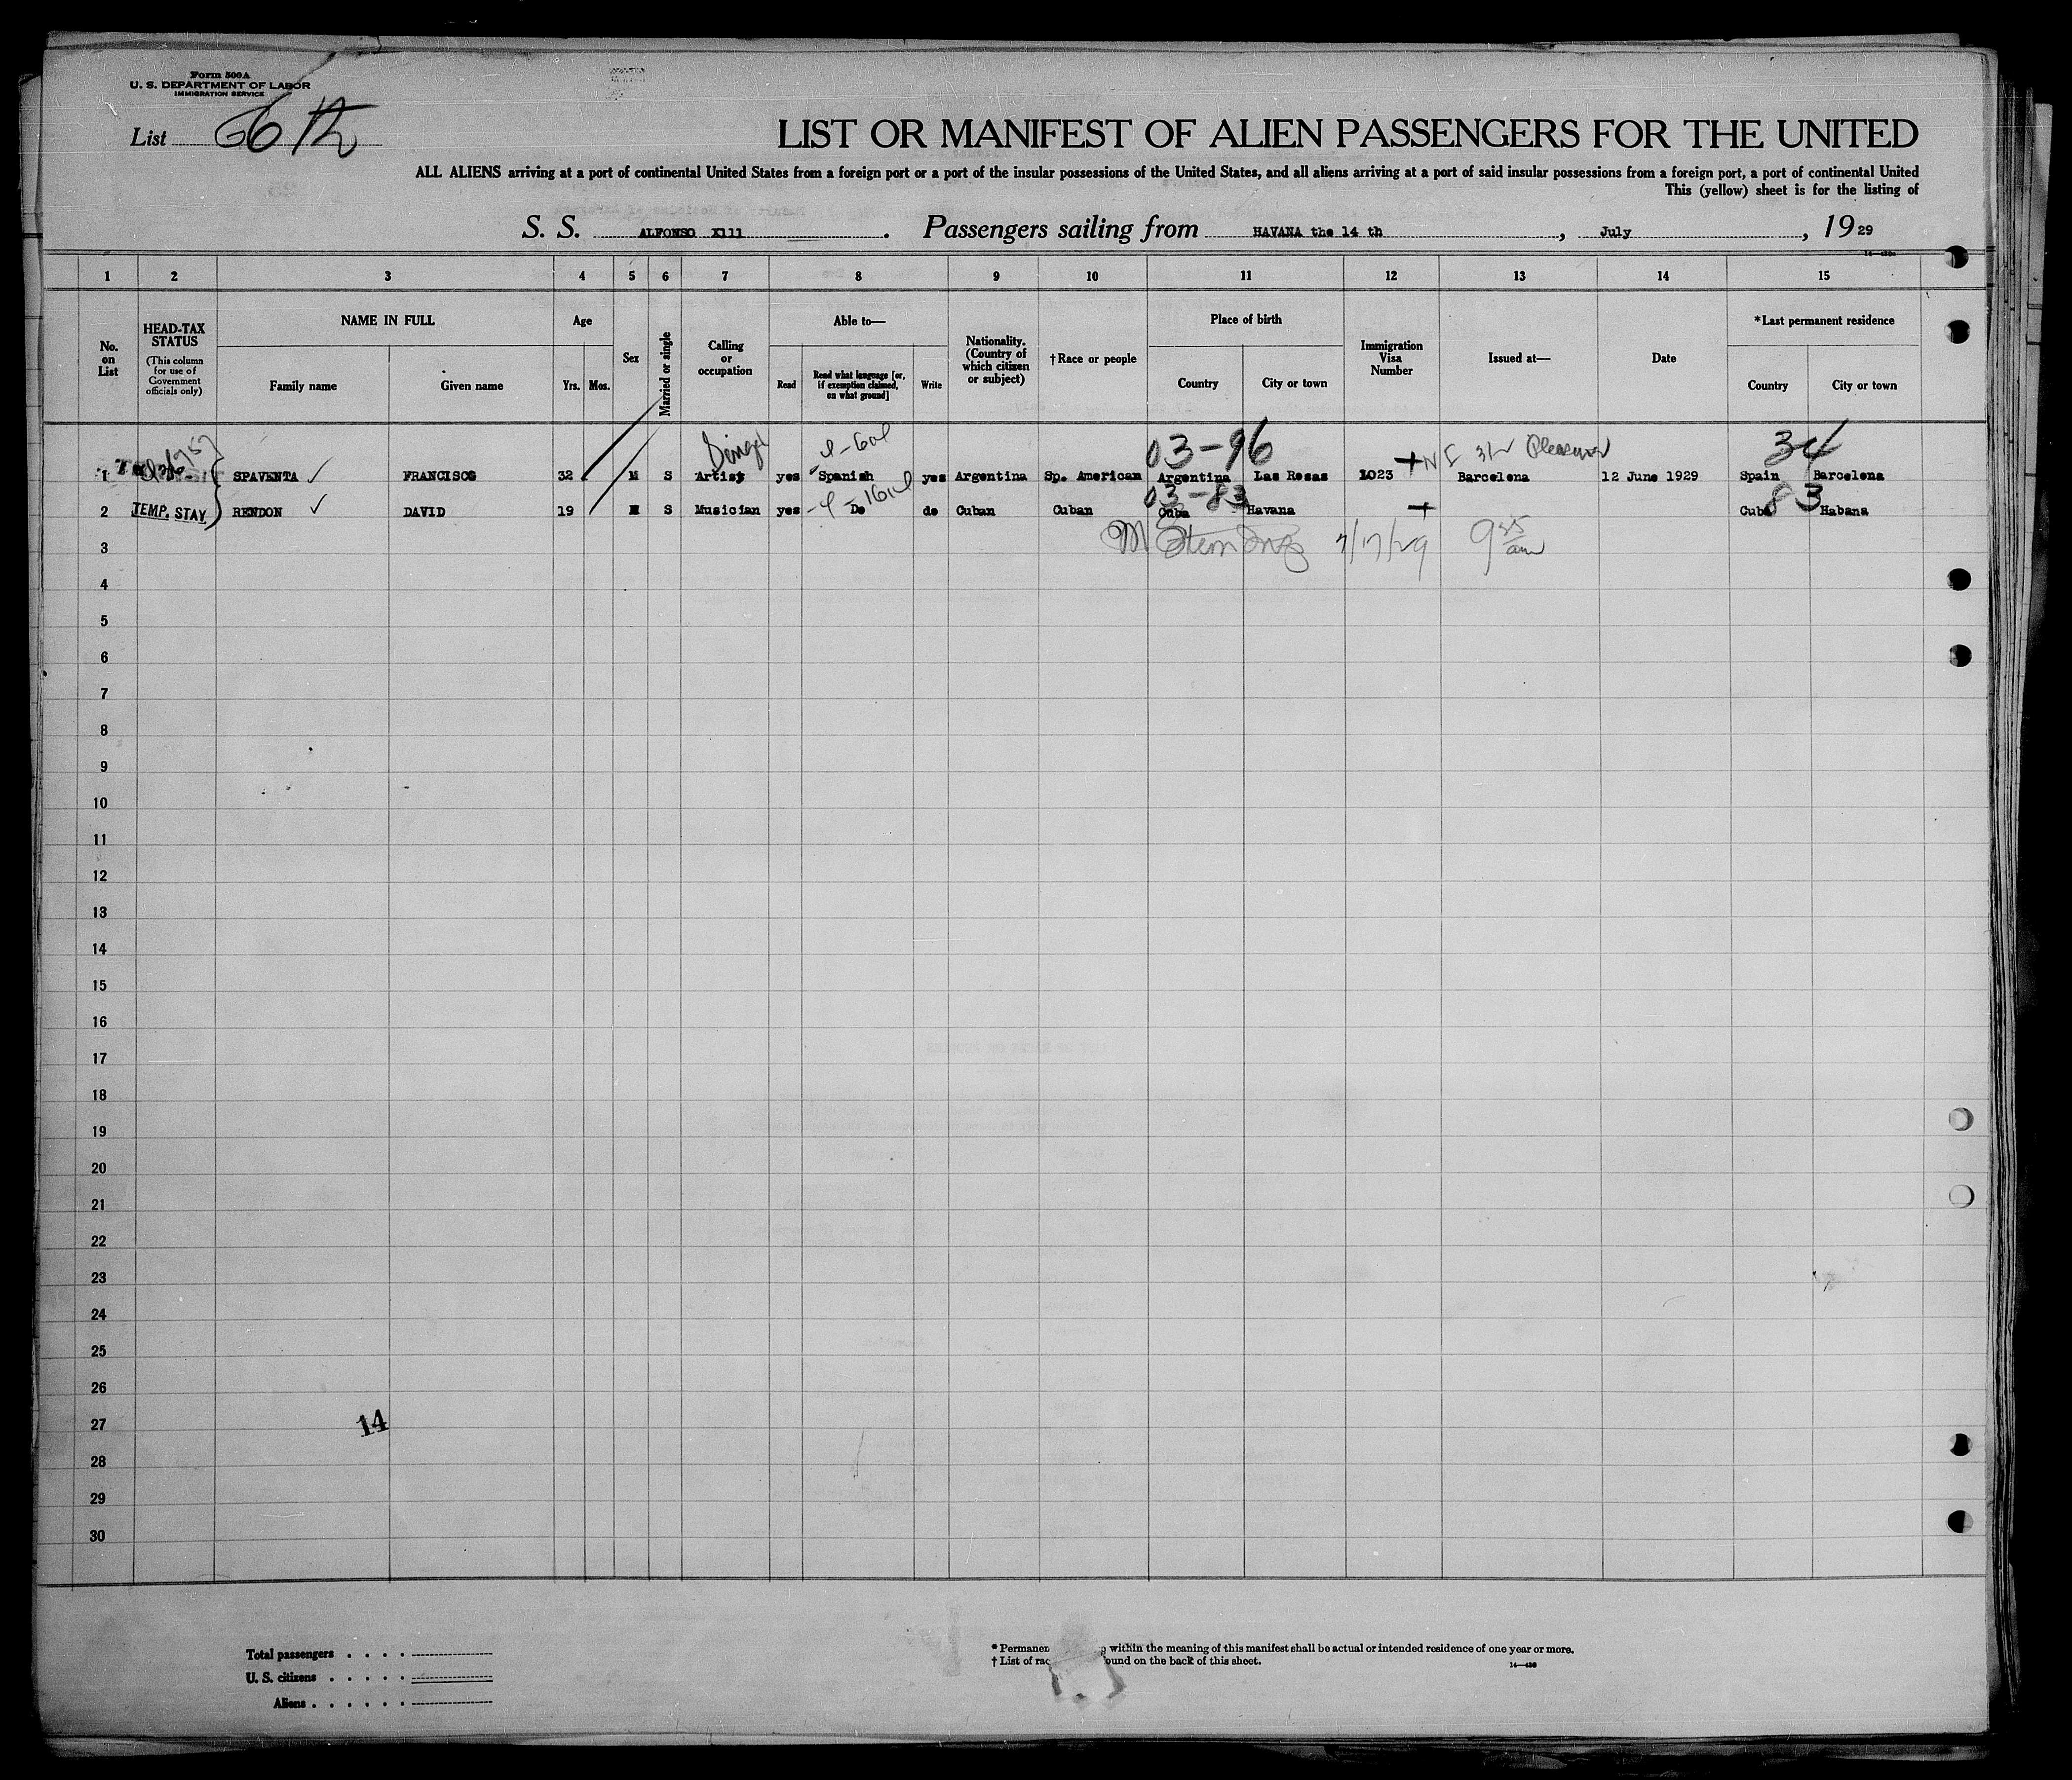 Form 500A
U. S. DEPARTMENT OF LABOR
IMMIGRATION SERVICE
List 66th
LIST OR MANIFEST OF ALIEN PASSENGERS FOR THE UNITED
ALL ALIENS arriving at a port of continental United States from a foreign port or a port of the insular possessions of the United States, and all aliens arriving at a port of said insular possessions from a foreign port, a port of continental United
This (yellow) sheet is for the listing of
S. S. ALFONSO X111 . Passengers sailing from HAVANA the 14 th , July , 19 29
1 2 3 4 5 6 7 8 9 10 11 12 13 14 15
No. on List
HEAD-TAX STATUS
(This column for use of Government officials only)
NAME IN FULL
Family name
Given name
Age
Yrs. Mos.
Sex
Married or single
Calling or occupation
Able to—
Read
Read what language [or, if exemption claimed, on what ground]
Write
Nationality. (Country of which citizen or subject)
†Race or people
Place of birth
Country
City or town
Immigration Visa Number
Issued at—
Date
*Last permanent residence
Country
City or town
03-96 34
1 SPAVENTA ✓ FRANCISCO 32 M S Artist yes Spanish yes Argentina Sp. American Argentina Las Rosas 1023 Barcelona 12 June 1929 Spain Barcelona
03-83 83
2 TEMP. STAY RENDON ✓ DAVID 19 M S Musician yes Do do Cuban Cuban Cuba Havana Cuba Habana
3 7/17/29 9 35 am
4
5
6
7
8
9
10
11
12
13
14
15
16
17
18
19
20
21
22
23
24
25
26
27
14
28
29
30
Total passengers . . . .
U. S. citizens . . . . .
Aliens . . . . . .
* Permanen within the meaning of this manifest shall be actual or intended residence of one year or more.
† List of rac ound on the back of this sheet.